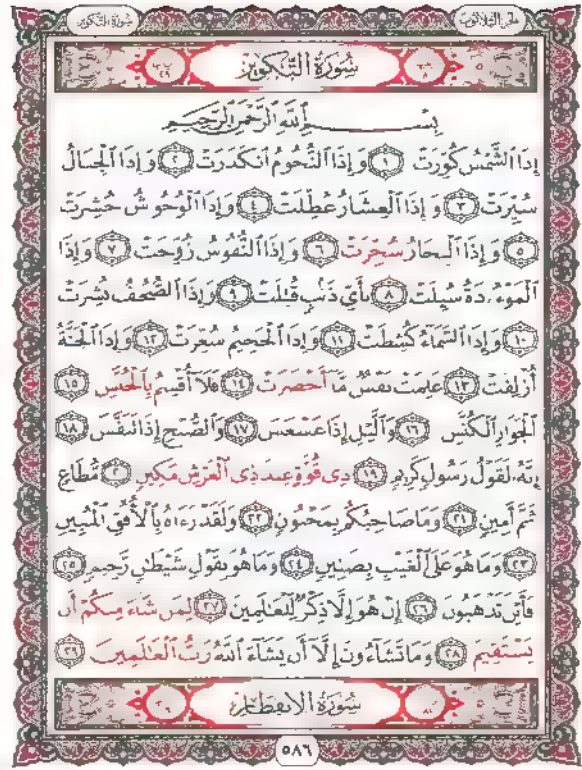 سُورَةُ التَّكْوِيرِ
الجزء الثلاثون
سُورَةُ التَّكْوِيرِ
بِسْمِ ٱللَّهِ ٱلرَّحْمَٰنِ ٱلرَّحِيمِ
إِذَا ٱلشَّمْسُ كُوِّرَتْ ١ وَإِذَا ٱلنُّجُومُ ٱنكَدَرَتْ ٢ وَإِذَا ٱلْجِبَالُ
سُيِّرَتْ ٣ وَإِذَا ٱلْعِشَارُ عُطِّلَتْ ٤ وَإِذَا ٱلْوُحُوشُ حُشِرَتْ
٥ وَإِذَا ٱلْبِحَارُ سُجِّرَتْ ٦ وَإِذَا ٱلنُّفُوسُ زُوِّجَتْ ٧ وَإِذَا
ٱلْمَوْءُۥدَةُ سُئِلَتْ ٨ بِأَيِّ ذَنۢبٍ قُتِلَتْ ٩ وَإِذَا ٱلصُّحُفُ نُشِرَتْ
١٠ وَإِذَا ٱلسَّمَآءُ كُشِطَتْ ١١ وَإِذَا ٱلْجَحِيمُ سُعِّرَتْ ١٢ وَإِذَا ٱلْجَنَّةُ
أُزْلِفَتْ ١٣ عَلِمَتْ نَفْسٌ مَّآ أَحْضَرَتْ ١٤ فَلَآ أُقْسِمُ بِٱلْخُنَّسِ ١٥
ٱلْجَوَارِ ٱلْكُنَّسِ ١٦ وَٱلَّيْلِ إِذَا عَسْعَسَ ١٧ وَٱلصُّبْحِ إِذَا تَنَفَّسَ ١٨
إِنَّهُۥ لَقَوْلُ رَسُولٍ كَرِيمٍ ١٩ ذِى قُوَّةٍ عِندَ ذِى ٱلْعَرْشِ مَكِينٍ ٢٠ مُّطَاعٍ
ثَمَّ أَمِينٍ ٢١ وَمَا صَاحِبُكُم بِمَجْنُونٍ ٢٢ وَلَقَدْ رَءَاهُ بِٱلْأُفُقِ ٱلْمُبِينِ
٢٣ وَمَا هُوَ عَلَى ٱلْغَيْبِ بِضَنِينٍ ٢٤ وَمَا هُوَ بِقَوْلِ شَيْطَٰنٍ رَّجِيمٍ ٢٥
فَأَيْنَ تَذْهَبُونَ ٢٦ إِنْ هُوَ إِلَّا ذِكْرٌ لِّلْعَٰلَمِينَ ٢٧ لِمَن شَآءَ مِنكُمْ أَن
يَسْتَقِيمَ ٢٨ وَمَا تَشَآءُونَ إِلَّآ أَن يَشَآءَ ٱللَّهُ رَبُّ ٱلْعَٰلَمِينَ ٢٩
سُورَةُ الِانْفِطَارِ
٥٨٦